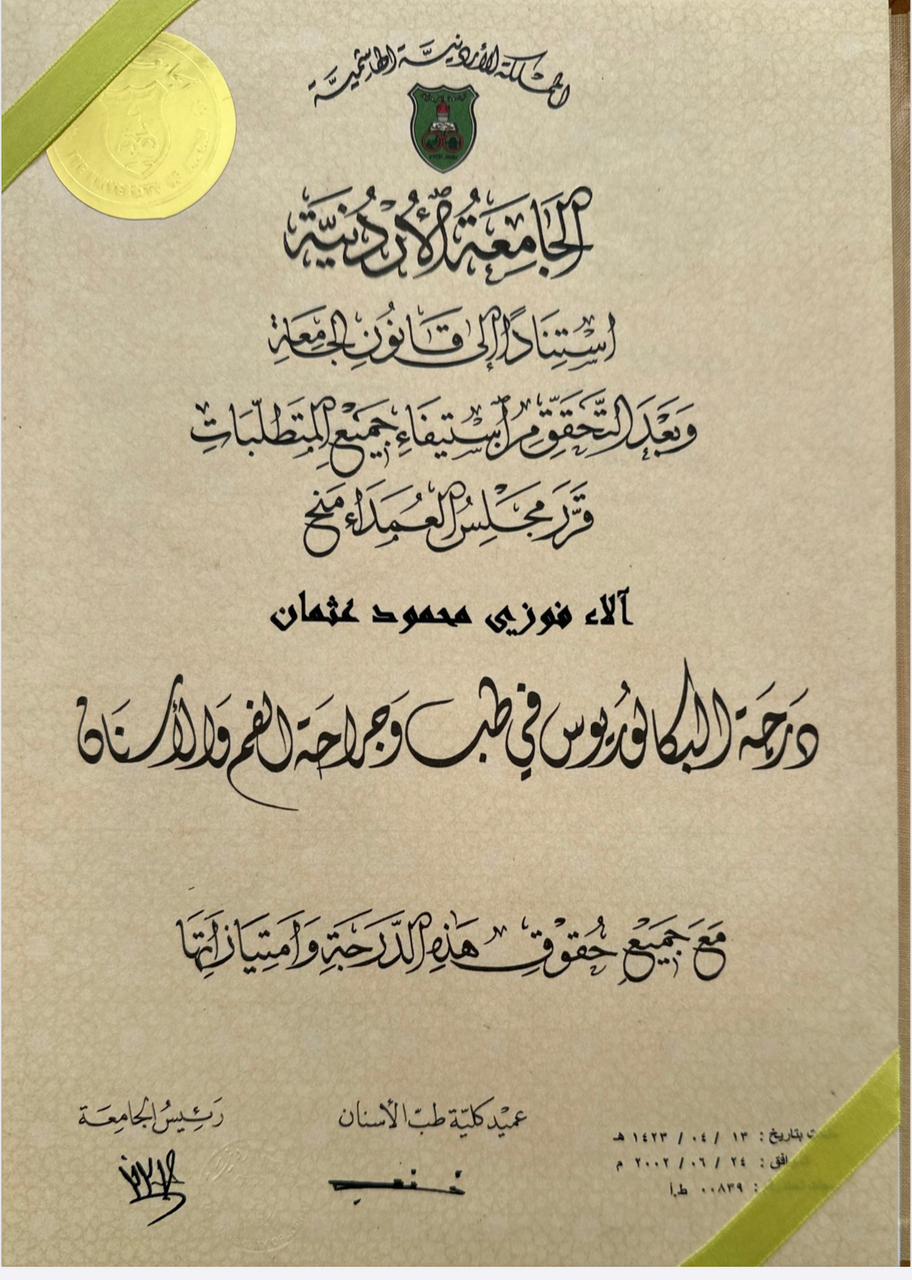 المملكة الأردنية الهاشمية
الجَامِعَةُ الأُرْدُنِيَّة
اسْتِنَادًا إلى قَانُونِ الجَامِعَةِ
وَبَعْدَ التَّحَقُّقِ مِنِ اسْتِيفَاءِ جَمِيعِ المُتَطَلَّبَاتِ
قَرَّرَ مَجْلِسُ العُمَدَاءِ مَنْحَ
آلاء فوزي محمود عثمان
دَرَجَة البكالوريُوس في طب وَجراحَة الفم وَالأسنَان
مَعَ جَمِيعِ حُقُوقِ هَذِهِ الدَّرَجَةِ وَامْتِيَازَاتِهَا
عميد كليّة طبّ الأسنان
رَئيسُ الجَامعَة
بتاريخ : ١٣ / ٠٤ / ١٤٢٣ هـ
٢٤ / ٠٦ / ٢٠٠٢ م
٠٠٨٣٩ ط.أ